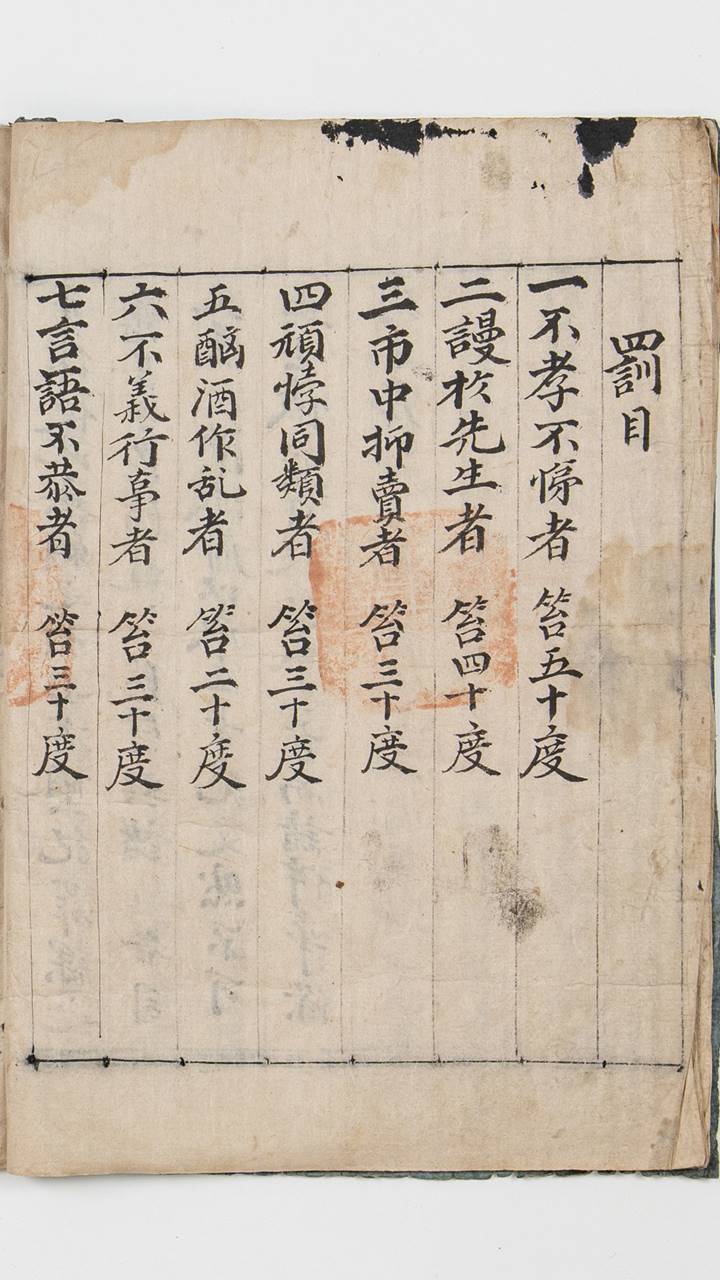 罰目
一不孝不悌者 笞五十度
二謾扵先生者 笞四十度
三市中抑賣者 笞三十度
四頑悖同類者 笞三十度
五酗酒作乱者 笞二十度
六不義行事者 笞三十度
七言語不恭者 笞三十度